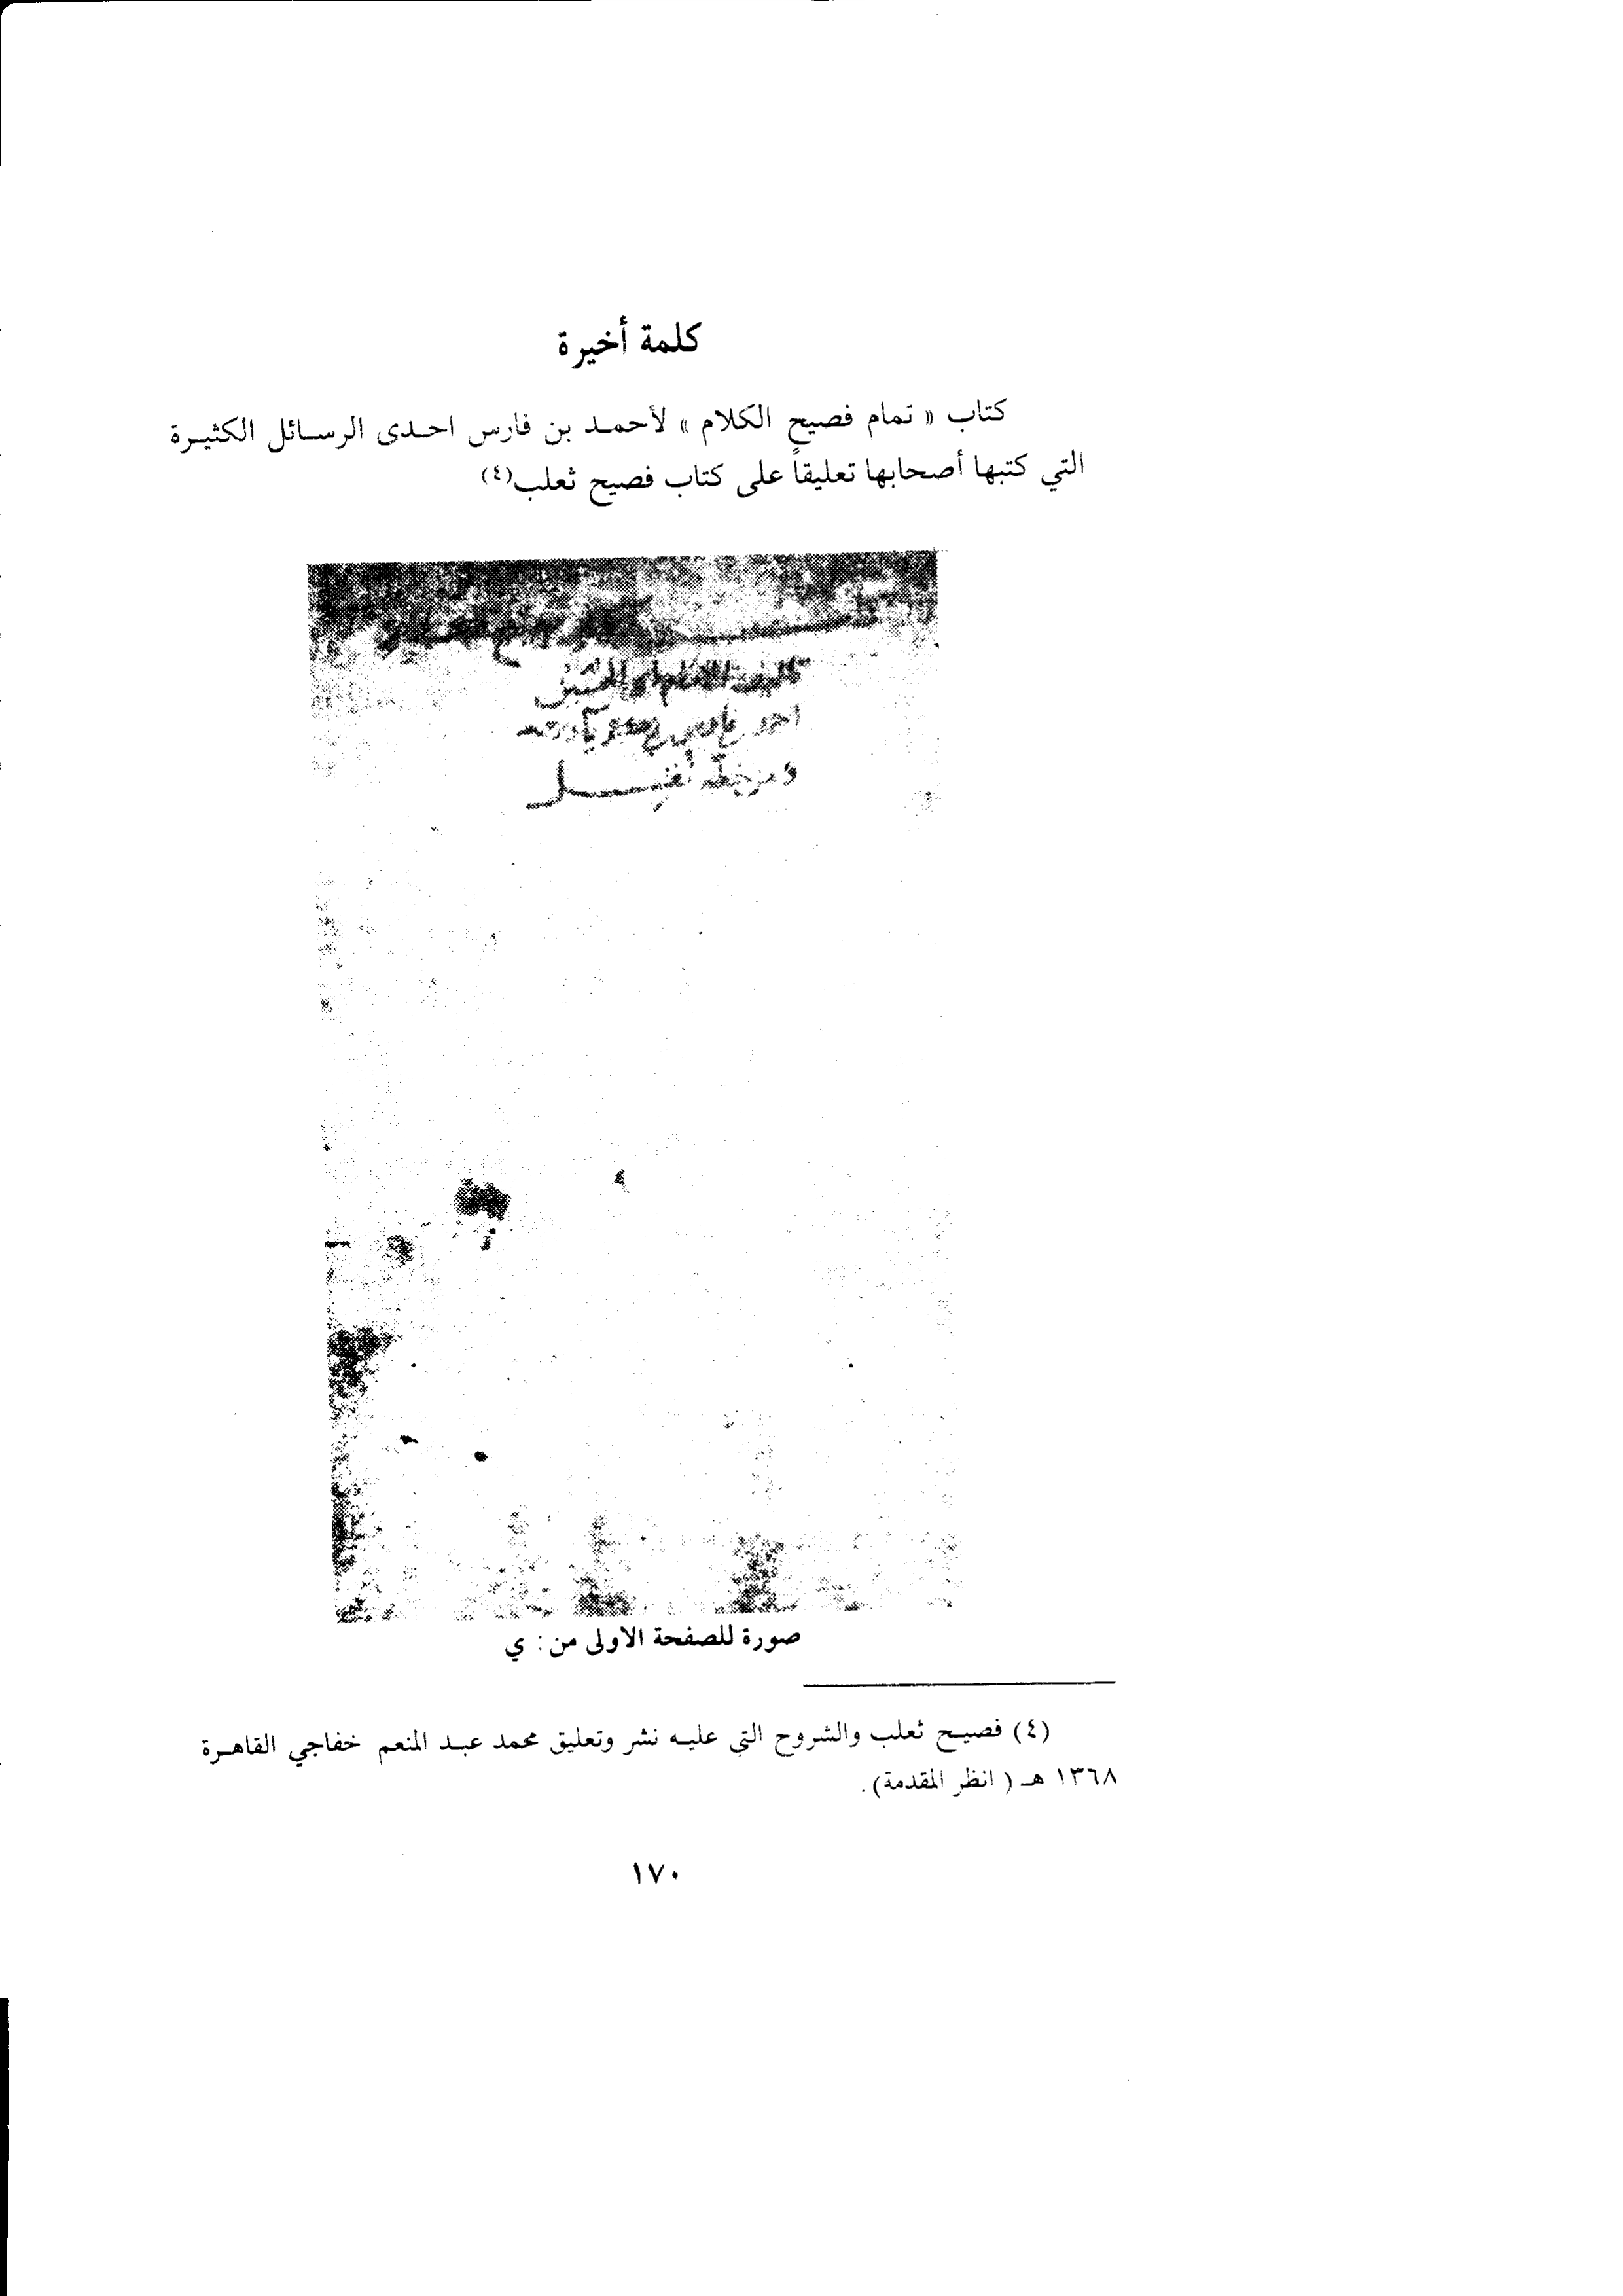 كلمة أخيرة
كتاب « تمام فصيح الكلام » لأحمـد بن فارس احـدى الرسـائل الكثيـرة
التي كتبها أصحابها تعليقاً على كتاب فصيح ثعلب(٤)
تاليف
احمد بن فارس بن
ومن خطه نقل
صورة للصفحة الاولى من : ي
(٤) فصيـح ثعلب والشروح التي عليـه نشر وتعليق محمد عبـد المنعم خفاجي القاهـرة
١٣٦٨ هـ ( انظر المقدمة) .
١٧٠